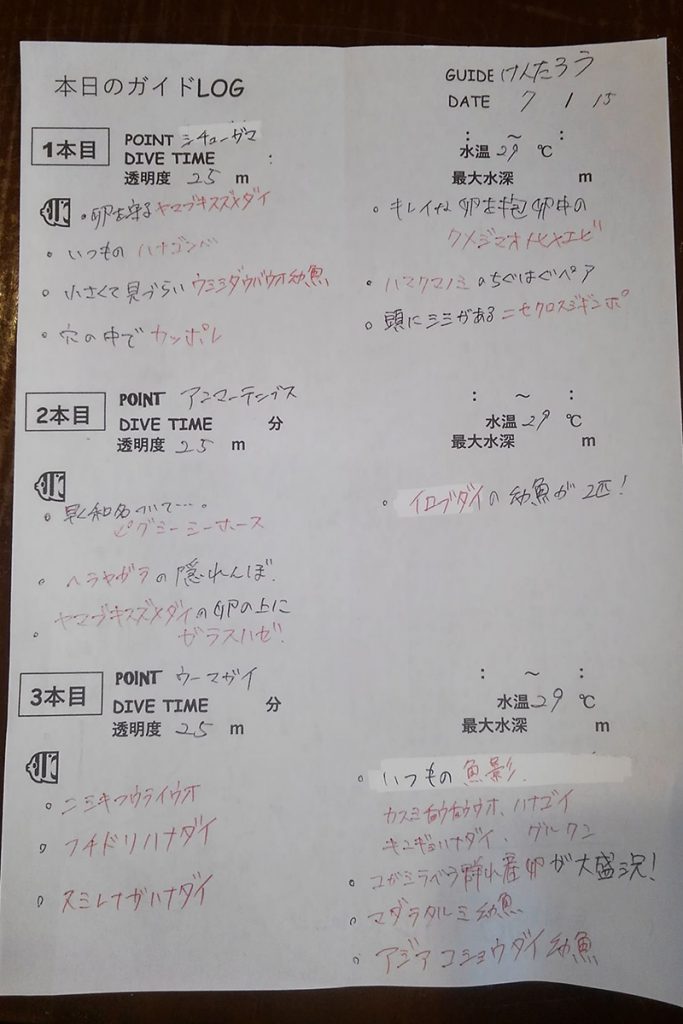 本日のガイドLOG
GUIDE けんたろう
DATE 7 / 15
1本目
POINT シチューガマ
DIVE TIME :
透明度 25 m
: ～ :
水温 29 ℃
最大水深 m
・卵を守るヤマブキスズメダイ
・いつものハナゴンベ
・小さくて見づらいウミシダウバウオ幼魚
・穴の中でカッポレ
・キレイな卵を抱卵中の
クメジマオトヒメエビ
・ハマクマノミのちぐはぐペア
・頭にミミがあるニセクロスジギンポ
2本目
POINT アンマーテンブス
DIVE TIME 分
透明度 25 m
: ～ :
水温 29 ℃
最大水深 m
・早く和名ついて…。
ピグミーシーホース
・ヘラヤガラの隠れんぼ.
・ヤマブキスズメダイの卵の上に
ガラスハゼ!
・イロブダイの幼魚が2匹!
3本目
POINT ウーマガイ
DIVE TIME 分
透明度 25 m
: ～ :
水温 29 ℃
最大水深 m
・ニシキフウライウオ
・フチドリハナダイ
・スミレナガハナダイ
・いつもの魚影.
カスミチョウチョウウオ、ハナゴイ
キンギョハナダイ、グルクン
・コガシラベラ群れ産卵が大盛況!
・マダラタルミ幼魚
・アジアコショウダイ幼魚